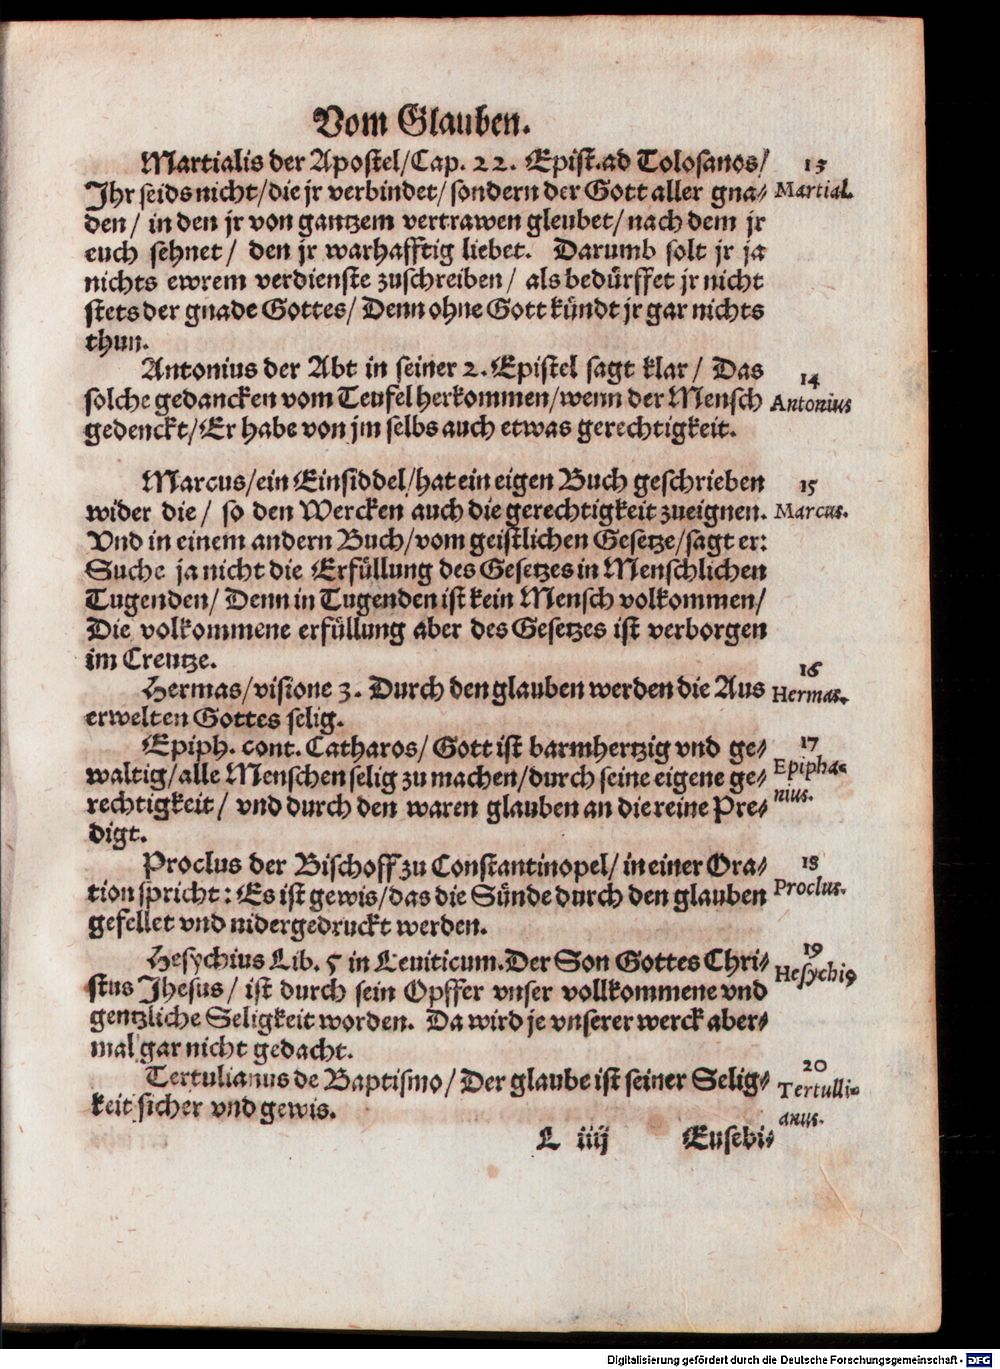 Vom Glauben.
Martialis der Apostel/Cap. 22. Epist. ad Tolosanos/
Jhr seids nicht/die jr verbindet/sondern der Gott aller gna⸗
den/ in den jr von gantzem vertrawen gleubet/nach dem jr
euch sehnet/ den jr warhafftig liebet. Darumb solt jr ja
nichts ewrem verdienste zuschreiben/ als bedürffet jr nicht
stets der gnade Gottes/ Denn ohne Gott kündt jr gar nichts
thun.
13
Martial.
Antonius der Abt in seiner 2. Epistel sagt klar/ Das
solche gedancken vom Teufel herkommen/wenn der Mensch
gedenckt/Er habe von jm selbs auch etwas gerechtigkeit.
14
Antonius
Marcus/ein Einsiddel/hat ein eigen Buch geschrieben
wider die/ so den Wercken auch die gerechtigkeit zueignen.
Vnd in einem andern Buch/vom geistlichen Gesetze/sagt er:
Suche ja nicht die Erfüllung des Gesetzes in Menschlichen
Tugenden/ Denn in Tugenden ist kein Mensch volkommen/
Die volkommene erfüllung aber des Gesetzes ist verborgen
im Creutze.
15
Marcus.
Hermas/visione 3. Durch den glauben werden die Aus
erwelten Gottes selig.
16
Hermas.
Epiph. cont. Catharos/ Gott ist barmhertzig vnd ge⸗
waltig/alle Menschen selig zu machen/durch seine eigene ge⸗
rechtigkeit/ vnd durch den waren glauben an die reine Pre⸗
digt.
17
Epipha⸗
nius.
Proclus der Bischoff zu Constantinopel/ in einer Ora⸗
tion spricht: Es ist gewis/das die Sünde durch den glauben
gefellet vnd nidergedruckt werden.
18
Proclus.
Hesychius Lib. 5 in Leuiticum. Der Son Gottes Chri⸗
stus Jhesus/ ist durch sein Opffer vnser vollkommene vnd
gentzliche Seligkeit worden. Da wird je vnserer werck aber⸗
mal gar nicht gedacht.
19
Hesychiꝰ
Tertulianus de Baptismo/ Der glaube ist seiner Selig⸗
keit sicher vnd gewis.
20
Tertulli⸗
anus.
L iiij Eusebi⸗
Digitalisierung gefördert durch die Deutsche Forschungsgemeinschaft - DFG